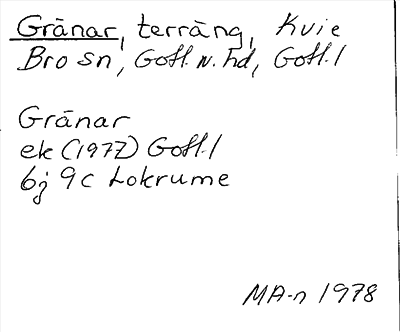 Gränar, terräng, Kvie
Bro sn, Gotl. n. hd, Gotl. l
Gränar
ek (1977) Gotl. l
6j 9c Lokrume
MA-n 1978